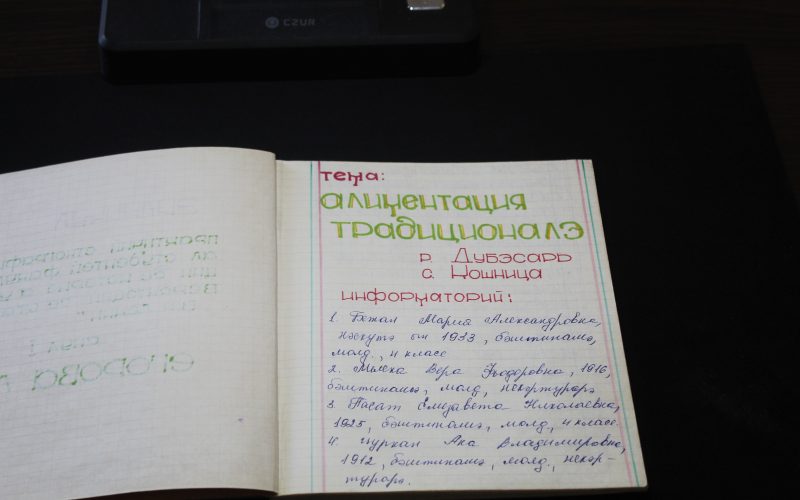 CZUR
тема:
алиментация
традиционалэ
р. Дубэсарь
с. Кошница
информаторий:
1. Мария Александровна,
нэскутэ ын 1933, бэштинашэ,
молд., 4 класе
2. Вера Федоровна, 1916,
бэштинашэ, молд, некэртурарэ
3. Пасат Елизавета Николаевна,
1925, бэштинашэ, молд, 4 класе.
4. Цуркан Ана Владимировна,
1912, бэштинашэ, молд., некэр-
турарэ.